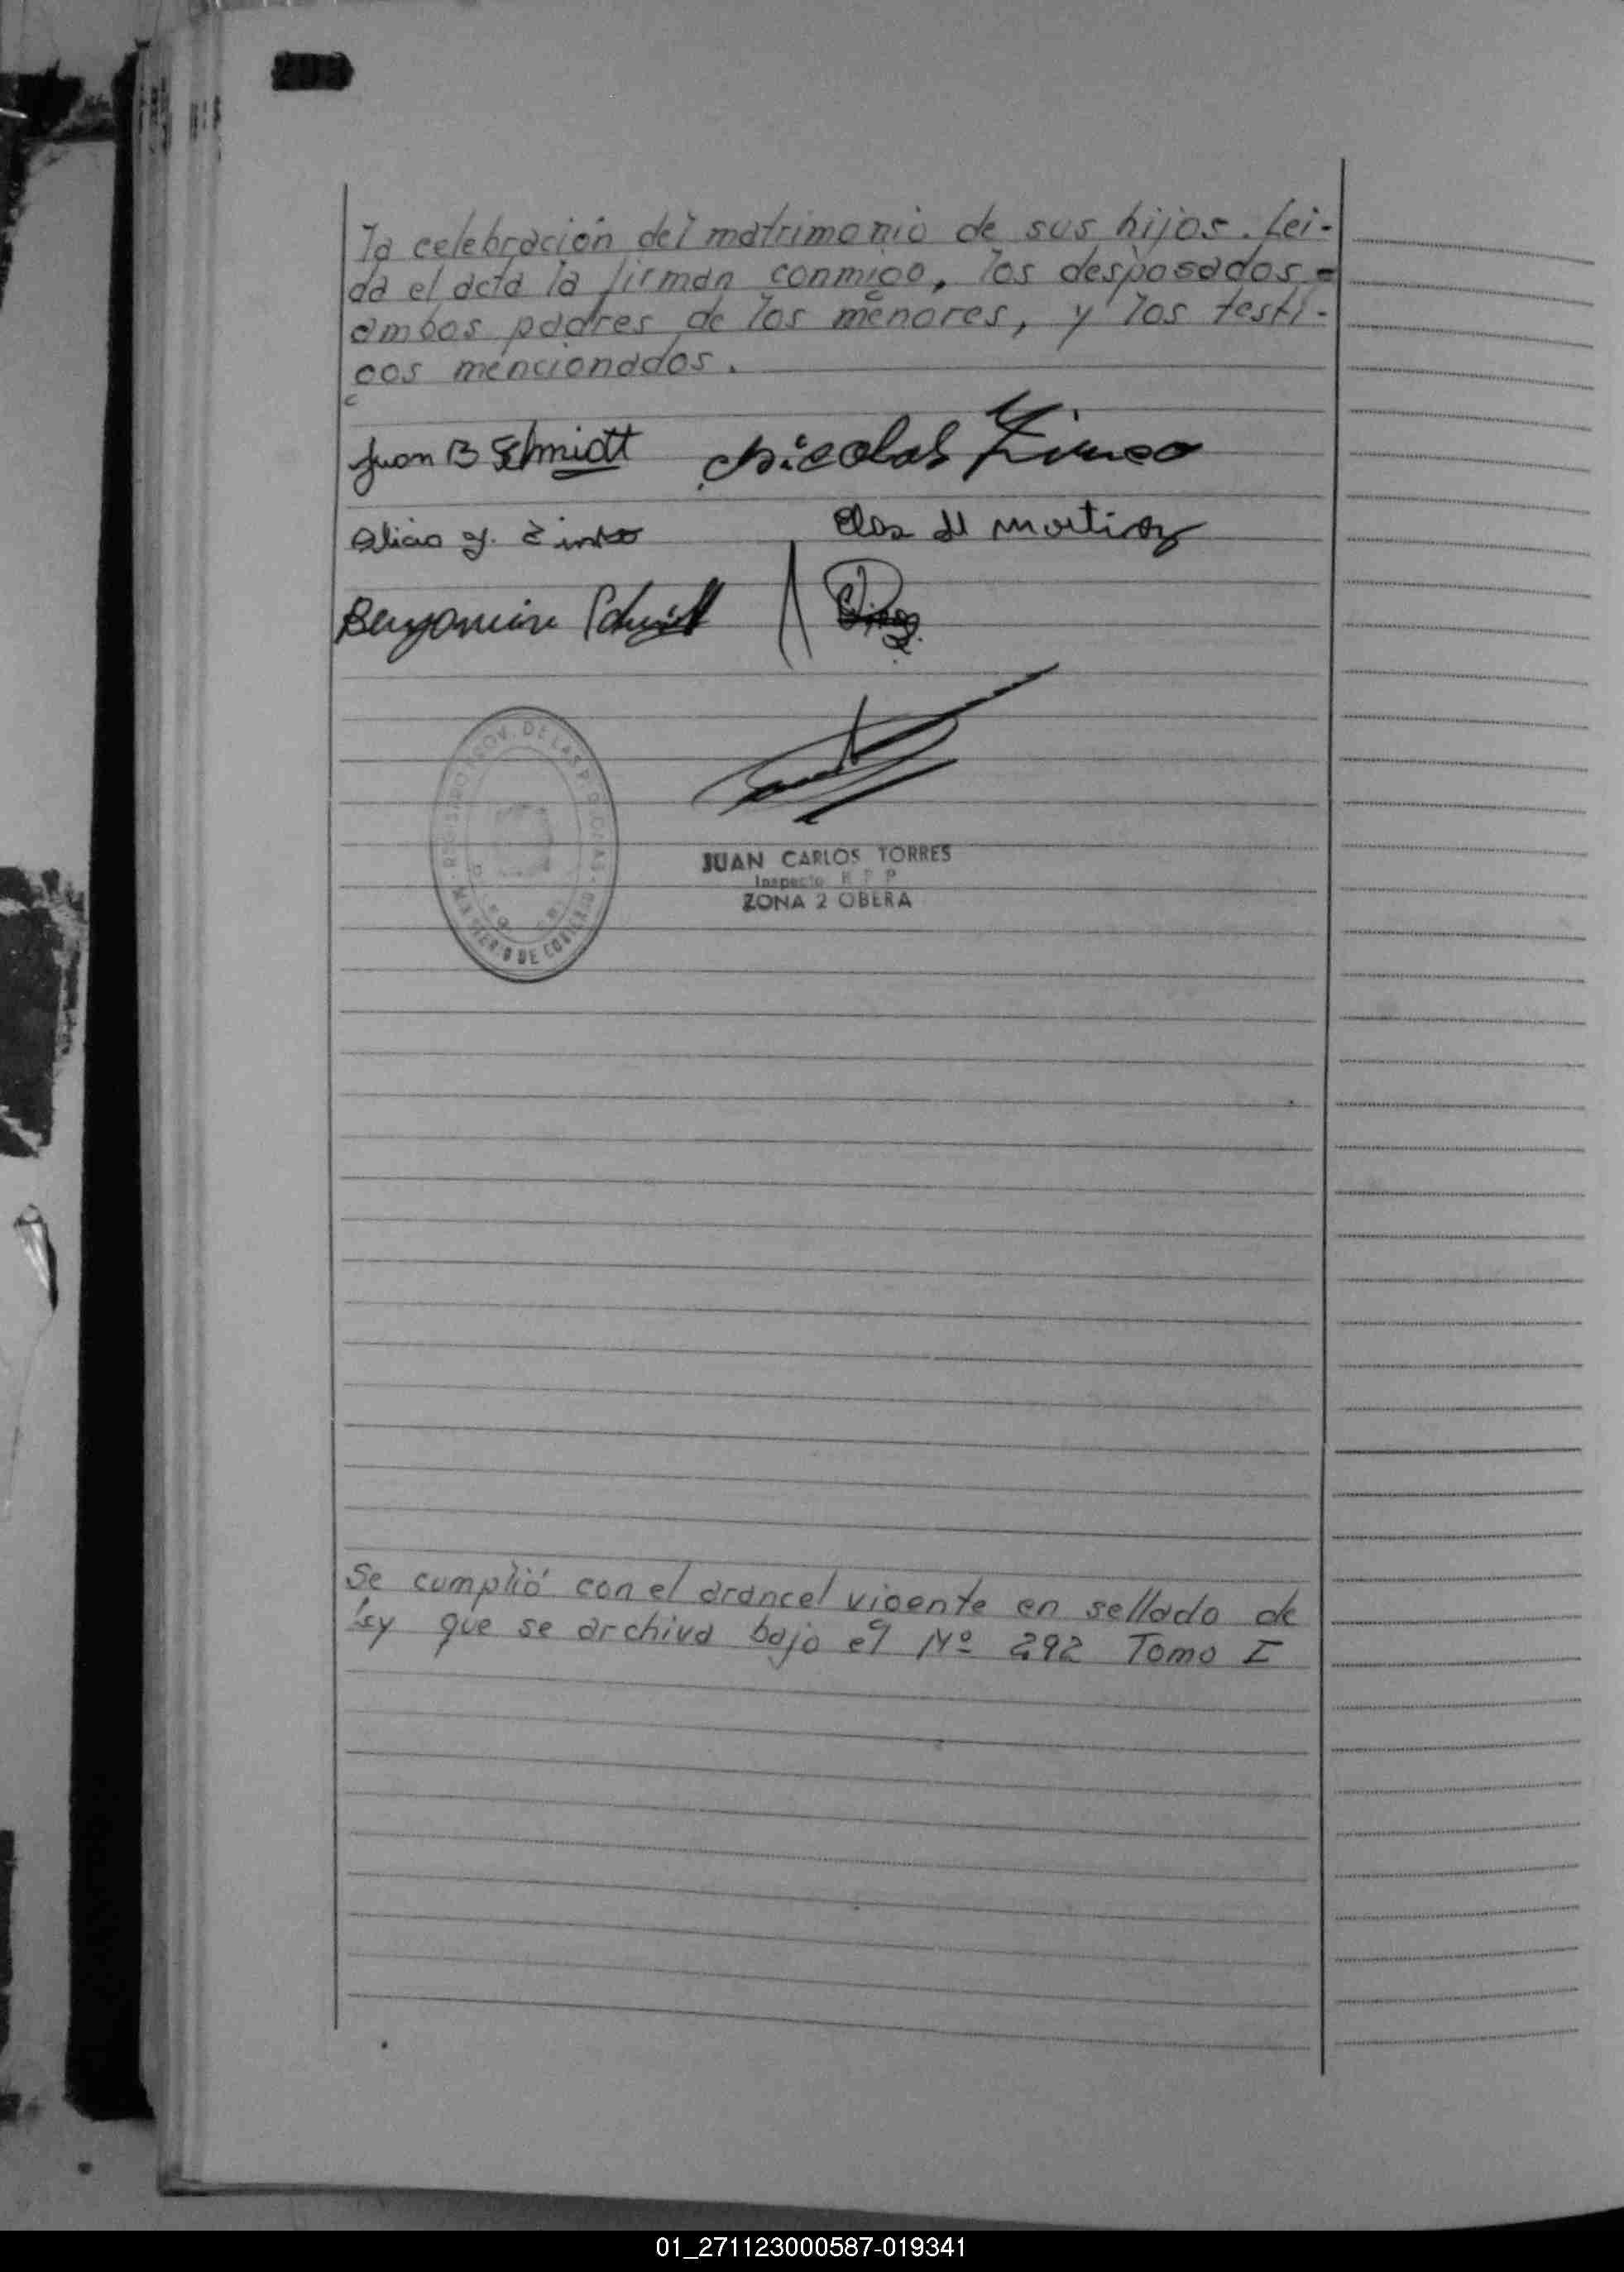 la celebración del matrimonio de sus hijos. Lei-
da el acta la firman conmigo, los desposados =
ambos padres de los menores, y los testi-
gos mencionados.
Juan B Schmidt Nicolas
Alicia
Benjamin Schmidt
REGISTRO PROV. DE LAS PERSONAS
MINISTERIO DE GOBIERNO
JUAN CARLOS TORRES
Inspector R P P
ZONA 2 OBERA
Se cumplió con el arancel vigente en sellado de
ley que se archiva bajo el Nº 292 Tomo I
01_271123000587-019341